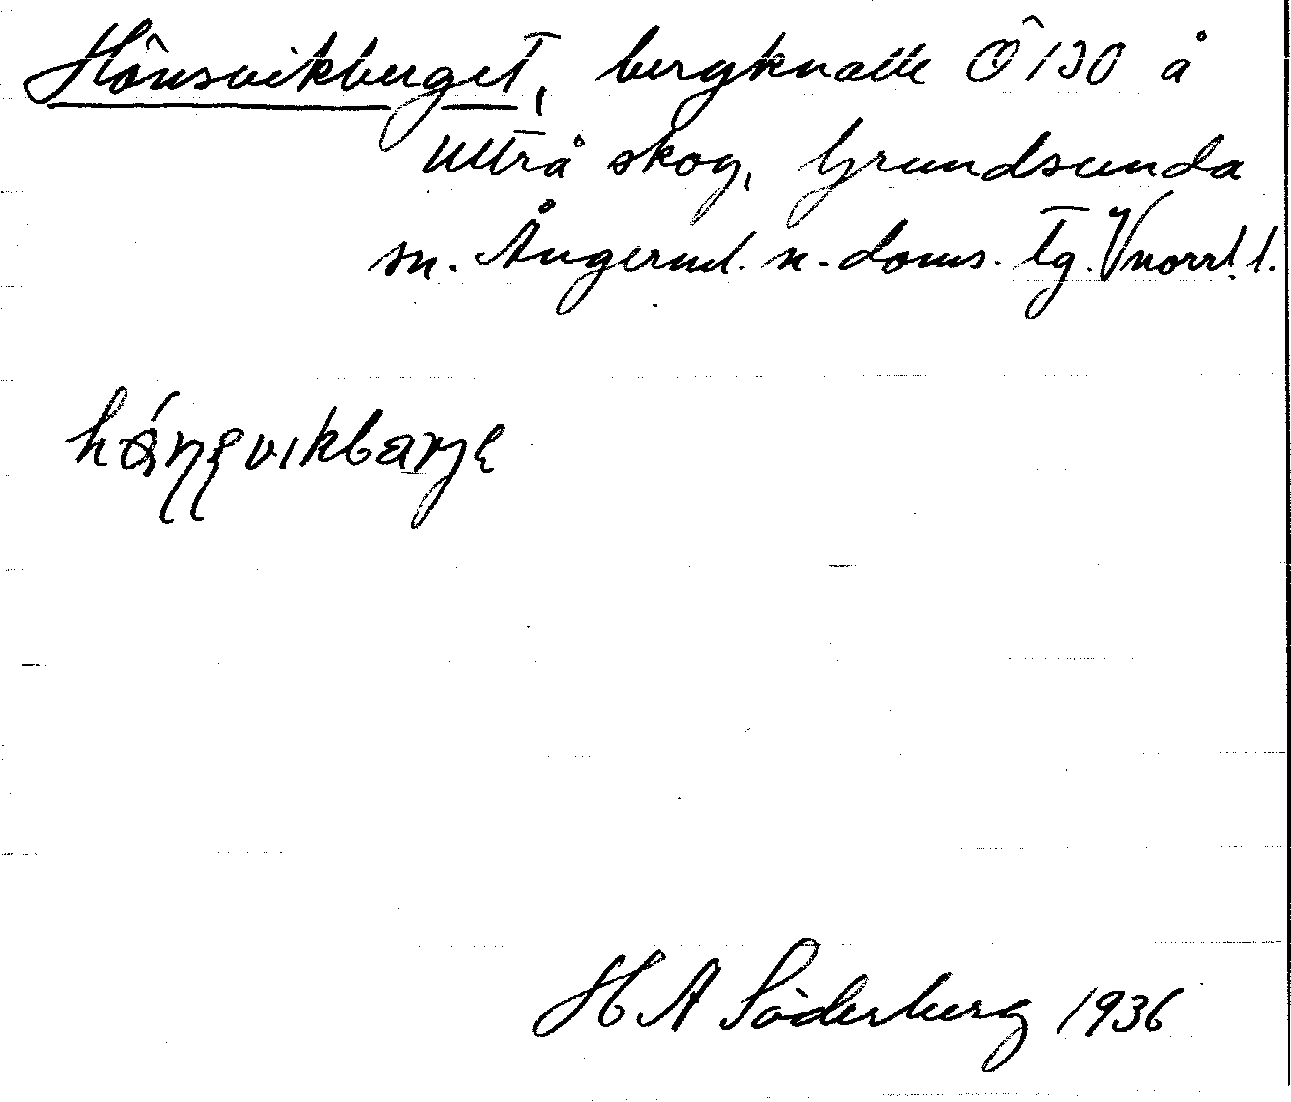 Hönsvikberget, bergknalle Ö 130 å
Utterå skog, Grundsunda
sn. Ångerml. n. doms. tg. Vnorrl. l.
H A Söderberg 1936